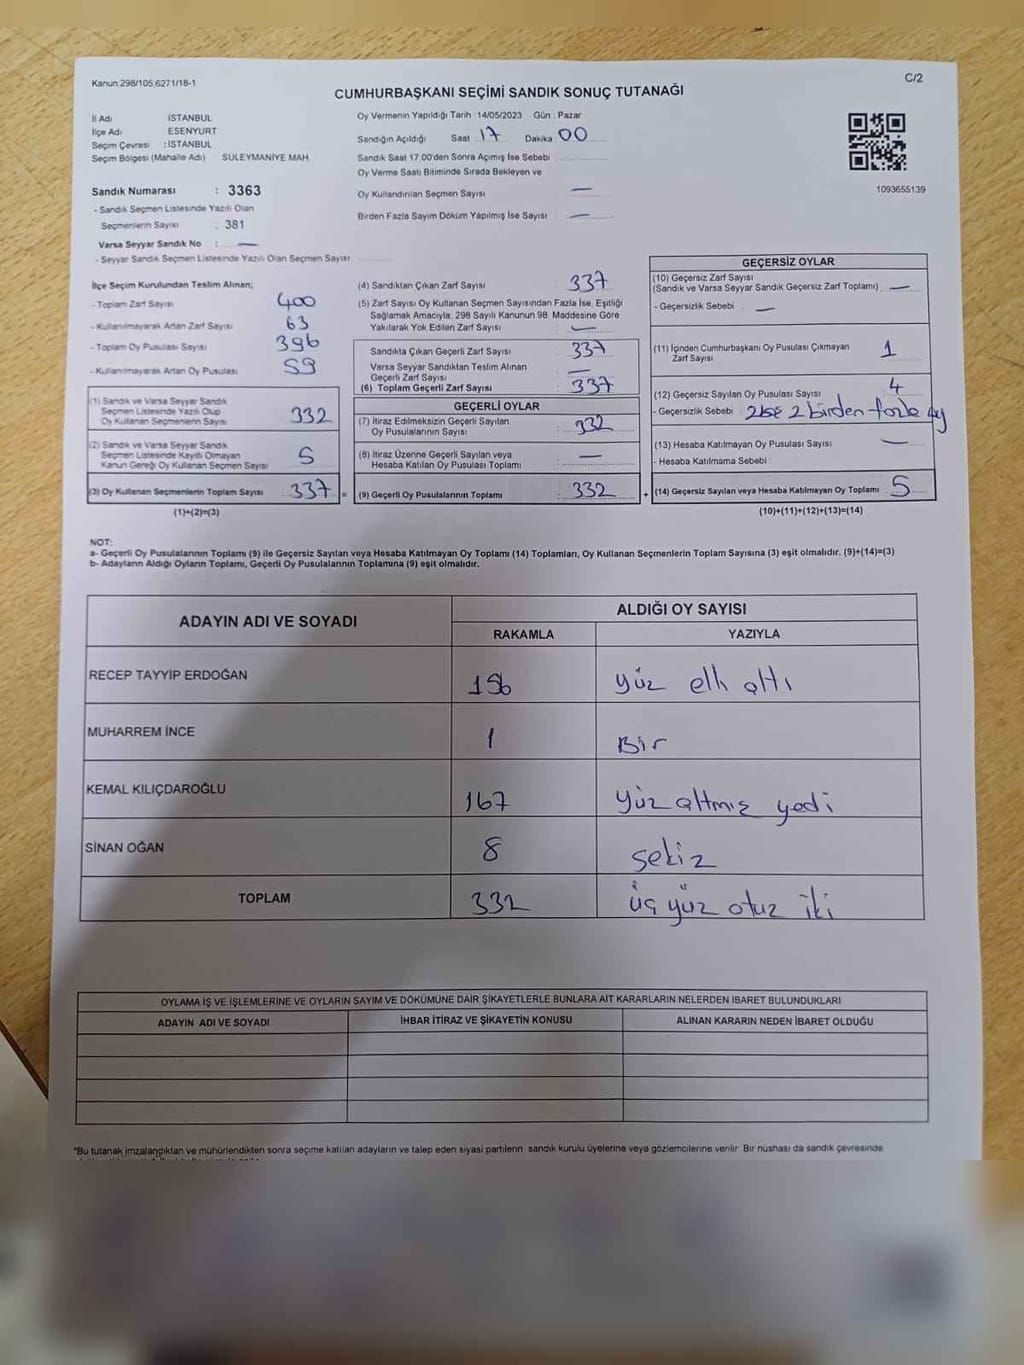 Kanun:298/105;6271/18-1
C/2
CUMHURBAŞKANI SEÇİMİ SANDIK SONUÇ TUTANAĞI
İl Adı İSTANBUL
İlçe Adı : ESENYURT
Seçim Çevresi : İSTANBUL
Seçim Bölgesi (Mahalle Adı) SÜLEYMANİYE MAH.
Sandık Numarası : 3363
- Sandık Seçmen Listesinde Yazılı Olan
Seçmenlerin Sayısı : 381
Varsa Seyyar Sandık No : —
- Seyyar Sandık Seçmen Listesinde Yazılı Olan Seçmen Sayısı
Oy Vermenin Yapıldığı Tarih 14/05/2023 Gün : Pazar
Sandığın Açıldığı Saat 17 Dakika 00
Sandık Saat 17.00'den Sonra Açımış İse Sebebi
Oy Verme Saati Bitiminde Sırada Bekleyen ve
Oy Kullandırılan Seçmen Sayısı —
Birden Fazla Sayım Döküm Yapılmış İse Sayısı : —
1093655139
İlçe Seçim Kurulundan Teslim Alınan;
- Toplam Zarf Sayısı 400
- Kullanılmayarak Artan Zarf Sayısı 63
- Toplam Oy Pusulası Sayısı 396
- Kullanılmayarak Artan Oy Pusulası 59
(1) Sandık ve Varsa Seyyar Sandık
Seçmen Listesinde Yazılı Olup
Oy Kullanan Seçmenlerin Sayısı 332
(2) Sandık ve Varsa Seyyar Sandık
Seçmen Listesinde Kayıtlı Olmayan
Kanun Gereği Oy Kullanan Seçmen Sayısı 5
(3) Oy Kullanan Seçmenlerin Toplam Sayısı 337 =
(1)+(2)=(3)
(4) Sandıktan Çıkan Zarf Sayısı 337
(5) Zarf Sayısı Oy Kullanan Seçmen Sayısından Fazla İse, Eşitliği
Sağlamak Amacıyla, 298 Sayılı Kanunun 98. Maddesine Göre
Yakılarak Yok Edilen Zarf Sayısı : —
Sandıkta Çıkan Geçerli Zarf Sayısı 337
Varsa Seyyar Sandıktan Teslim Alınan
Geçerli Zarf Sayısı —
(6) Toplam Geçerli Zarf Sayısı : 337
GEÇERLİ OYLAR
(7) İtiraz Edilmeksizin Geçerli Sayılan
Oy Pusulalarının Sayısı : 332
(8) İtiraz Üzerine Geçerli Sayılan veya
Hesaba Katılan Oy Pusulası Toplamı —
(9) Geçerli Oy Pusulalarının Toplamı : 332 +
GEÇERSİZ OYLAR
(10) Geçersiz Zarf Sayısı
(Sandık ve Varsa Seyyar Sandık Geçersiz Zarf Toplamı) : —
- Geçersizlik Sebebi : —
(11) İçinden Cumhurbaşkanı Oy Pusulası Çıkmayan
Zarf Sayısı 1
(12) Geçersiz Sayılan Oy Pusulası Sayısı 4
- Geçersizlik Sebebi
(13) Hesaba Katılmayan Oy Pusulası Sayısı —
- Hesaba Katılmama Sebebi :
(14) Geçersiz Sayılan veya Hesaba Katılmayan Oy Toplamı : 5
(10)+(11)+(12)+(13)=(14)
NOT:
a- Geçerli Oy Pusulalarının Toplamı (9) ile Geçersiz Sayılan veya Hesaba Katılmayan Oy Toplamı (14) Toplamları, Oy Kullanan Seçmenlerin Toplam Sayısına (3) eşit olmalıdır. (9)+(14)=(3)
b- Adayların Aldığı Oyların Toplamı, Geçerli Oy Pusulalarının Toplamına (9) eşit olmalıdır.
ADAYIN ADI VE SOYADI
ALDIĞI OY SAYISI
RAKAMLA YAZIYLA
RECEP TAYYİP ERDOĞAN 156 yüz elli altı
MUHARREM İNCE 1 Bir
KEMAL KILIÇDAROĞLU 167 yüz altmış yedi
SİNAN OĞAN 8 sekiz
TOPLAM 332 üç yüz otuz iki
OYLAMA İŞ VE İŞLEMLERİNE VE OYLARIN SAYIM VE DÖKÜMÜNE DAİR ŞİKAYETLERLE BUNLARA AİT KARARLARIN NELERDEN İBARET BULUNDUKLARI
ADAYIN ADI VE SOYADI İHBAR İTİRAZ VE ŞİKAYETİN KONUSU ALINAN KARARIN NEDEN İBARET OLDUĞU
*Bu tutanak imzalandıktan ve mühürlendikten sonra seçime katılan adayların ve talep eden siyasi partilerin sandık kurulu üyelerine veya gözlemcilerine verilir. Bir nüshası da sandık çevresinde